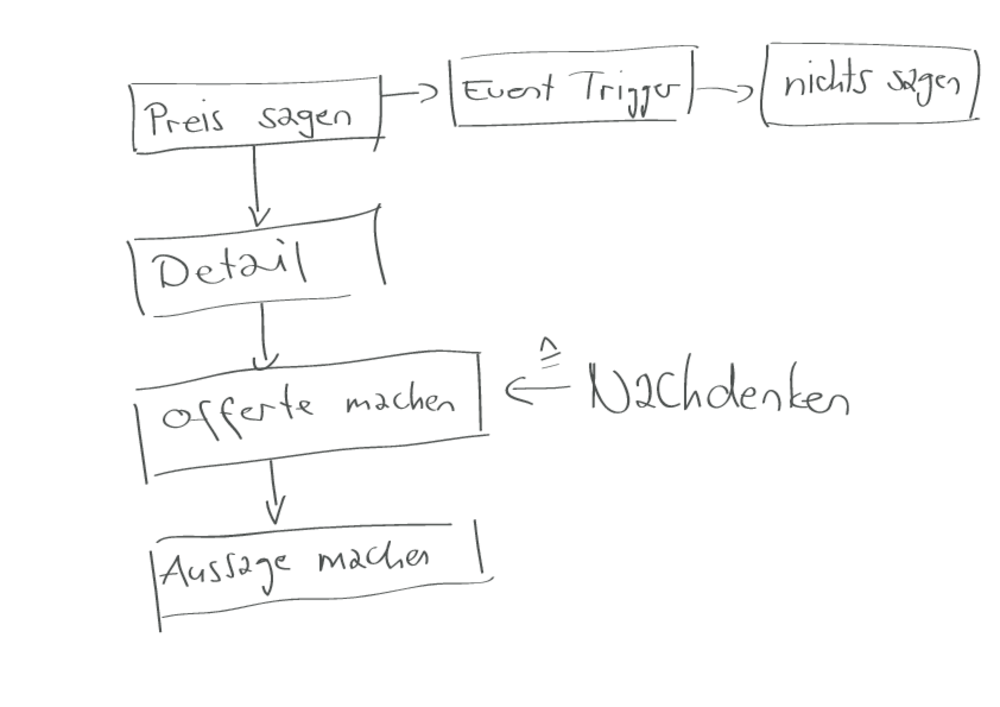 Preis sagen
Event Trigger
nichts sagen
Detail
Offerte machen
≙
Nachdenken
Aussage machen